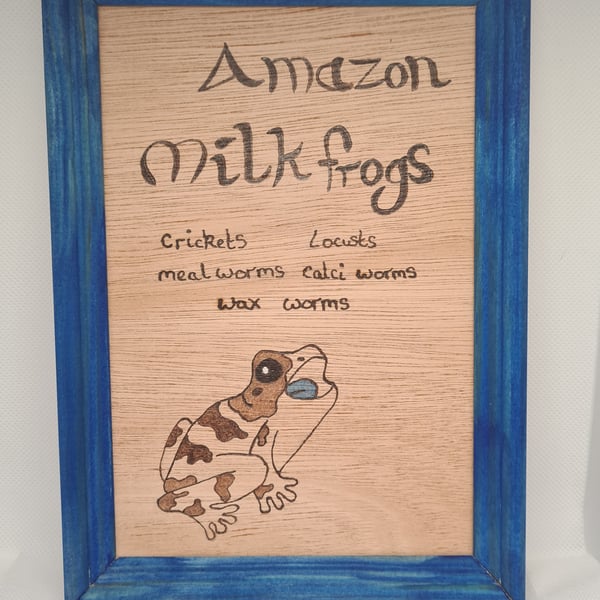 Amazon
Milk frogs
Crickets Locusts
meal worms calci worms
wax worms